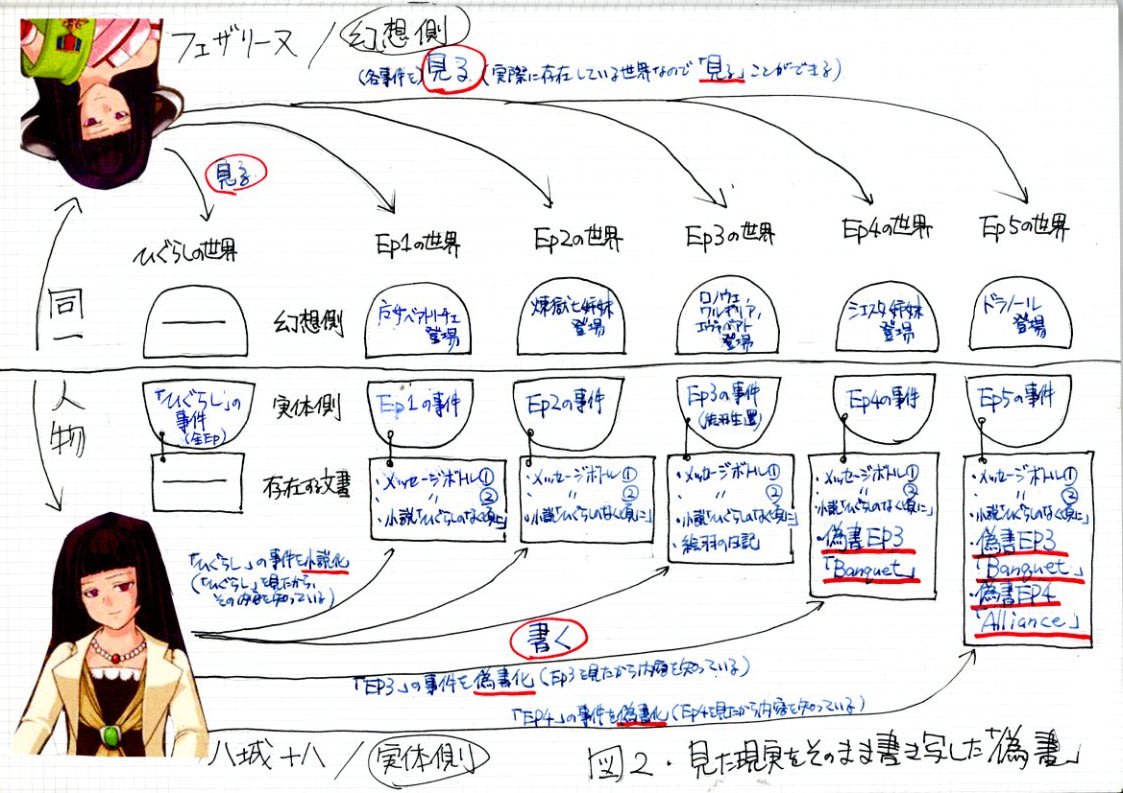 フェザリーヌ／幻想側
(各事件を)見る(実際に存在している世界なので「見る」ことができる)
見る
ひぐらしの世界
Ep1の世界
Ep2の世界
Ep3の世界
Ep4の世界
Ep5の世界
同一人物
幻想側
煉獄七姉妹
登場
ロノウェ
ワルギリア,
エヴァベアト
登場
シエスタ姉妹
登場
ドラノール
登場
実体側
「ひぐらし」の
事件
(全Ep)
Ep1の事件
Ep2の事件
Ep3の事件
(絵羽生還)
Ep4の事件
Ep5の事件
存在する文書
・メッセージボトル①
・〃②
・小説「ひぐらしのなく頃に」
・メッセージボトル①
・〃②
・小説「ひぐらしのなく頃に」
・メッセージボトル①
・〃②
・小説「ひぐらしのなく頃に」
・絵羽の日記
・メッセージボトル①
・〃②
・小説「ひぐらしのなく頃に」
・偽書EP3
「Banquet」
・メッセージボトル①
・〃②
・小説「ひぐらしのなく頃に」
・偽書EP3
「Banquet」
・偽書EP4
「Alliance」
「ひぐらし」の事件を小説化
(「ひぐらし」を見たから、
その内容を知っている)
書く
「EP3」の事件を偽書化(Ep3を見たから内容を知っている)
「EP4」の事件を偽書化(Ep4を見たから内容を知っている)
八城十八／実体側
図2・見た現実をそのまま書き写した「偽書」